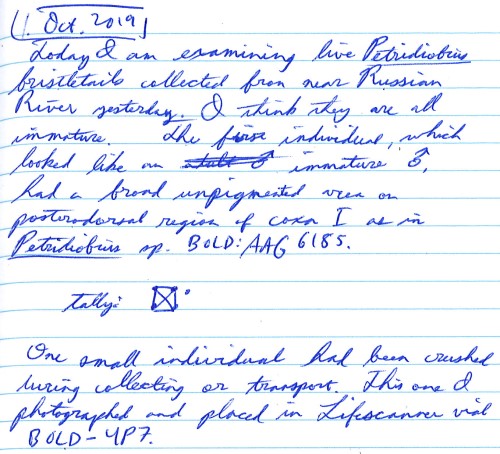 1. Oct. 2019
Today I am examining live Petridiobius
bristletails collected from near Russian
River yesterday. I think they are all
immature. The first individual, which
looked like an adult ♂ immature ♂,
had a broad unpigmented area on
posterodorsal region of coxa I as in
Petridiobius sp. BOLD:AAG6185.
tally:
One small individual had been crushed
during collecting or transport. This one I
photographed and placed in Lifescanner vial
BOLD-4P7.